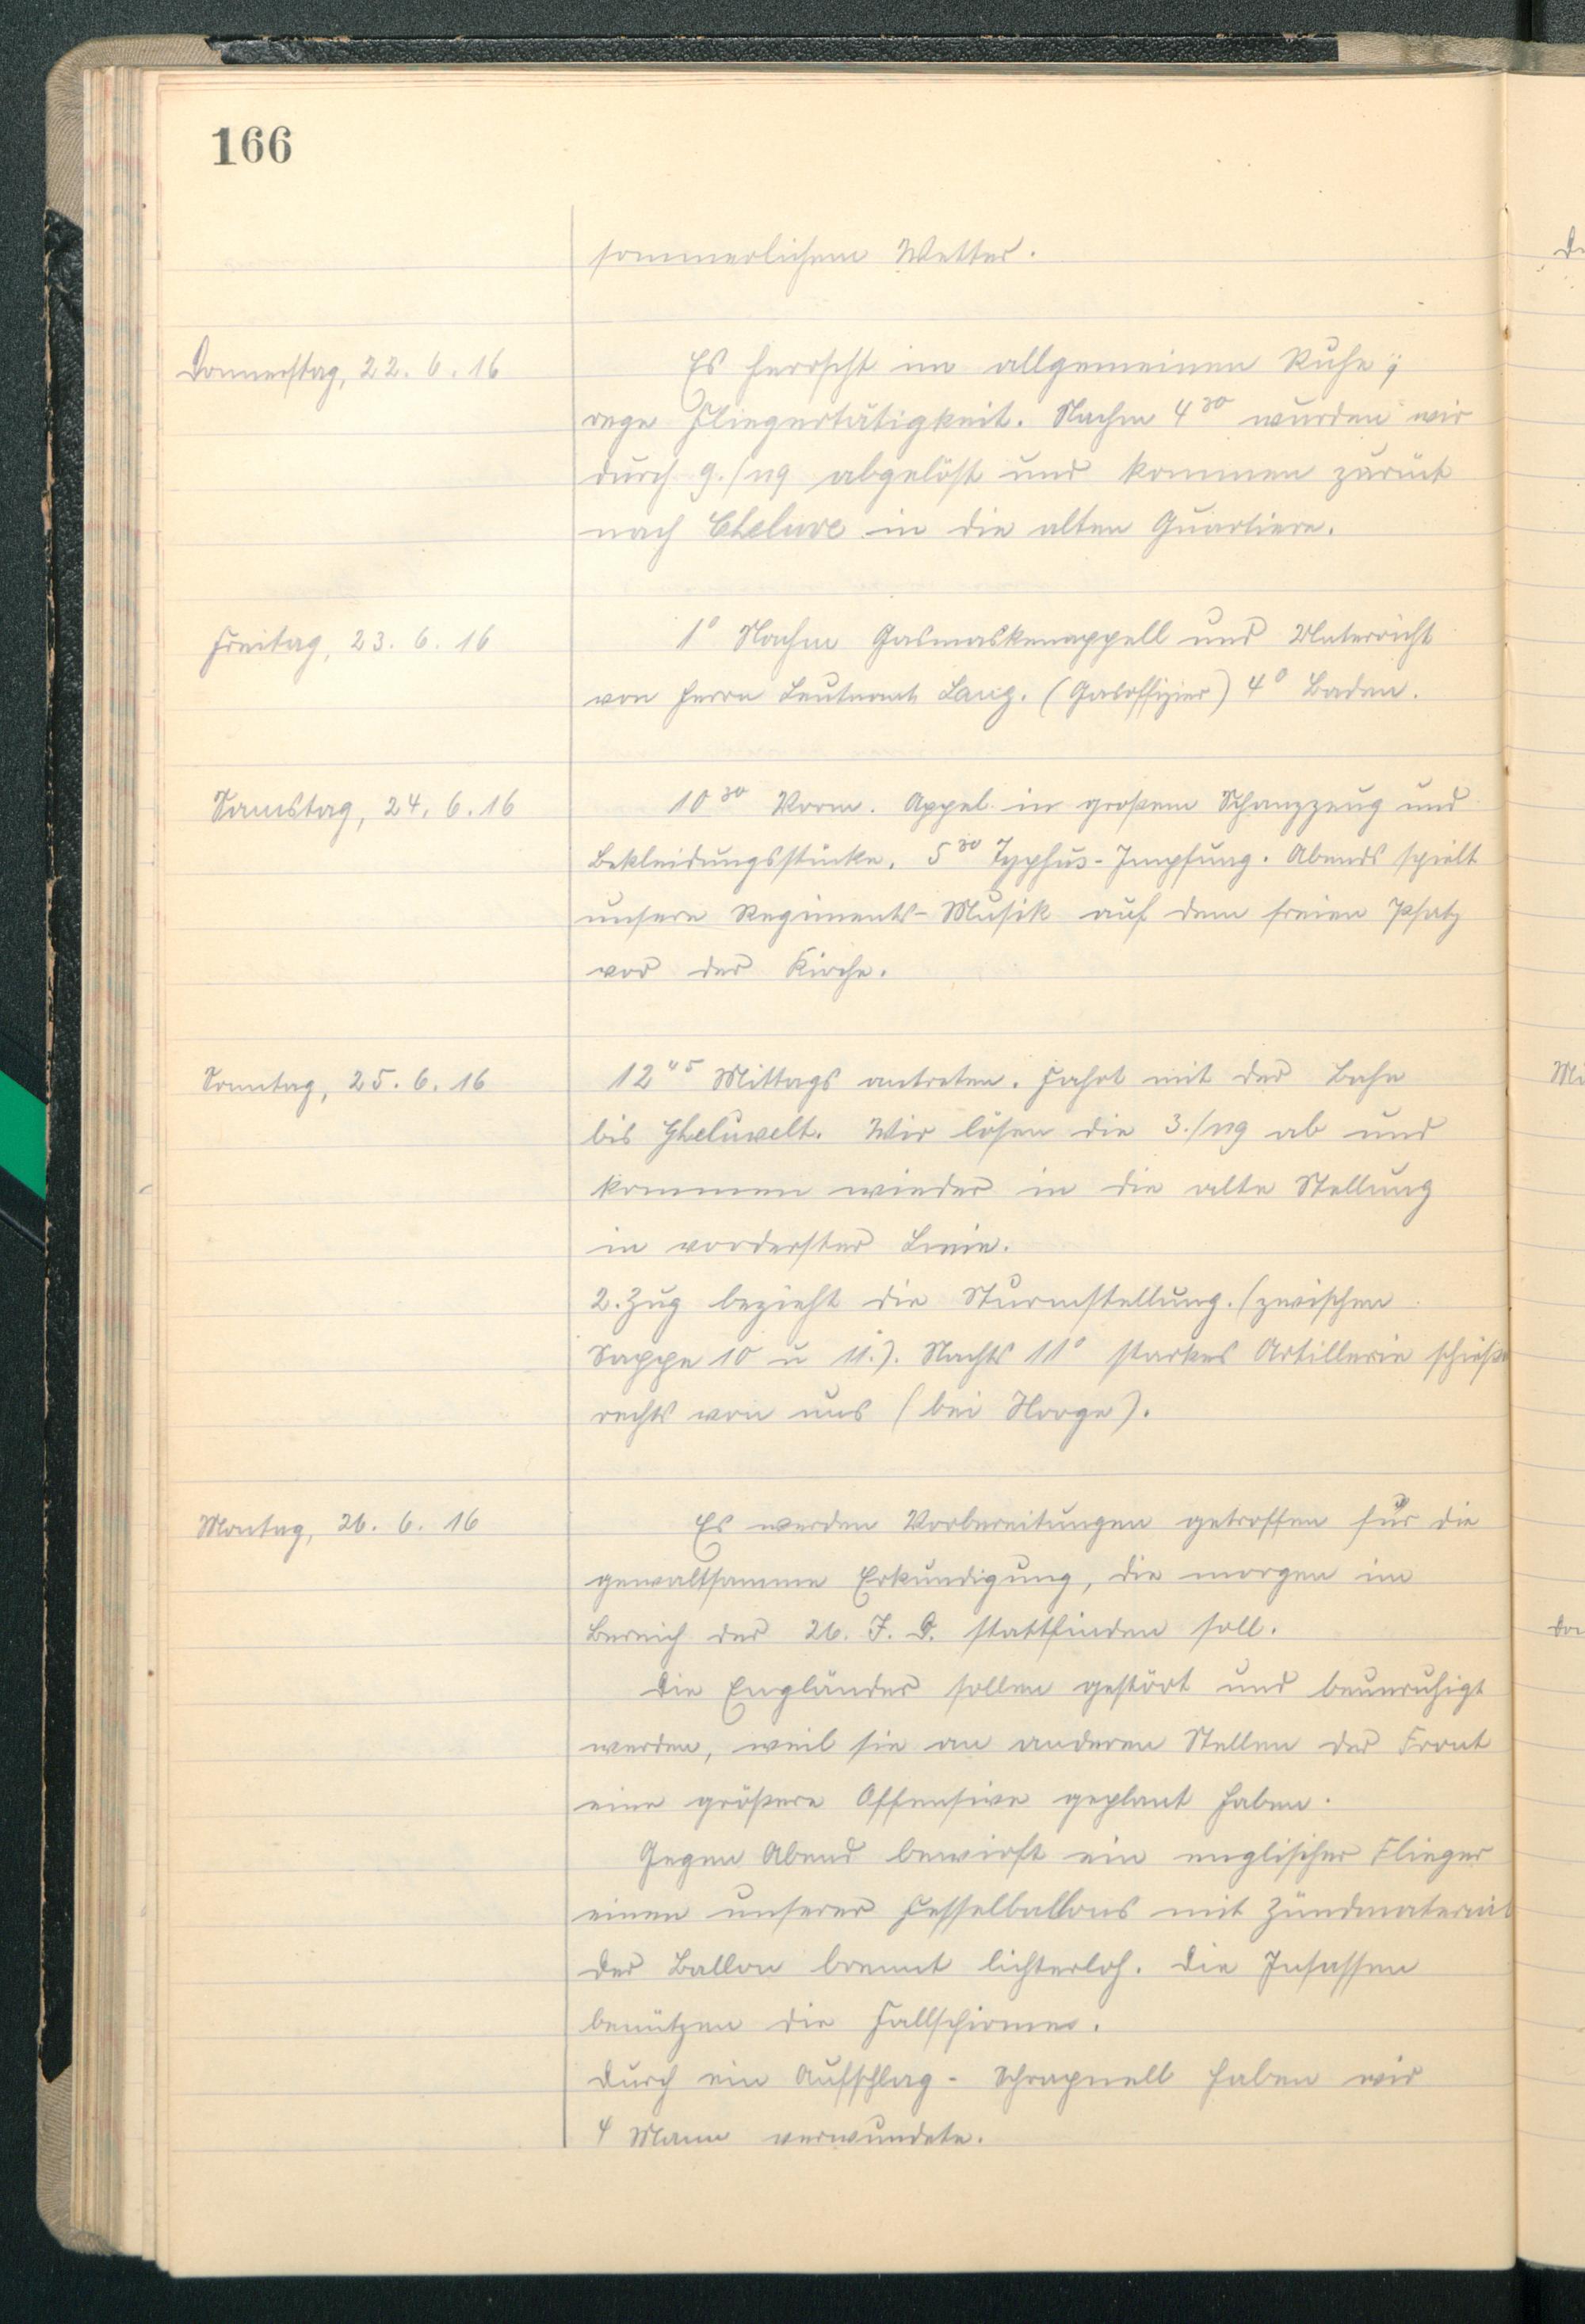 166
sommerlichem Wetter.
Donnerstag, 22. 6. 16
Es herrscht im allgemeinen Ruhe;
rege Fliegertätigkeit. Nachm 4³⁰ wurden wir
durch 9./119 abgelöst und kommen zurück
nach Cheluwe in die alten Quartiere.
Freitag, 23. 6. 16
1⁰ Nachm Gasmaskenappell und Unterricht
von Herrn Leutnant Lang. (Gasoffizier) 4⁰ Baden.
Samstag, 24. 6. 16
10³⁰ Vorm. Appel in großem Schanzzeug und
Bekleidungsstücke. 5³⁰ Typhus-Impfung. Abends spielt
unsere Regiments-Musik auf dem freien Platz
vor der Kirche.
Sonntag, 25. 6. 16
12⁴⁵ Mittags antreten. Fahrt mit der Bahn
bis Gheluvelt. Wir lösen die 3./119 ab und
kommen wieder in die alte Stellung
in vorderster Linie.
2. Zug bezieht die Sturmstellung. (zwischen
Sappe 10 u 11.). Nachts 11⁰ starkes Artillerie schießen
rechts von uns (bei Hooge).
Montag, 26. 6. 16
Es werden Vorbereitungen getroffen für die
gewaltsamme Erkundigung, die morgen im
Bereich der 26. J. D. stattfinden soll.
Die Engländer sollen gestört und beunruhigt
werden, weil sie an anderen Stellen der Front
eine größere Offensive geplant haben.
Gegen Abend bewirft ein englischer Flieger
einen unserer Fesselballons mit Zündmaterial
Der Ballon brennt lichterloh. Die Insassen
benützen die Fallschirme.
Durch ein Aufschlag-Schrapnell haben wir
4 Mann verwundete.